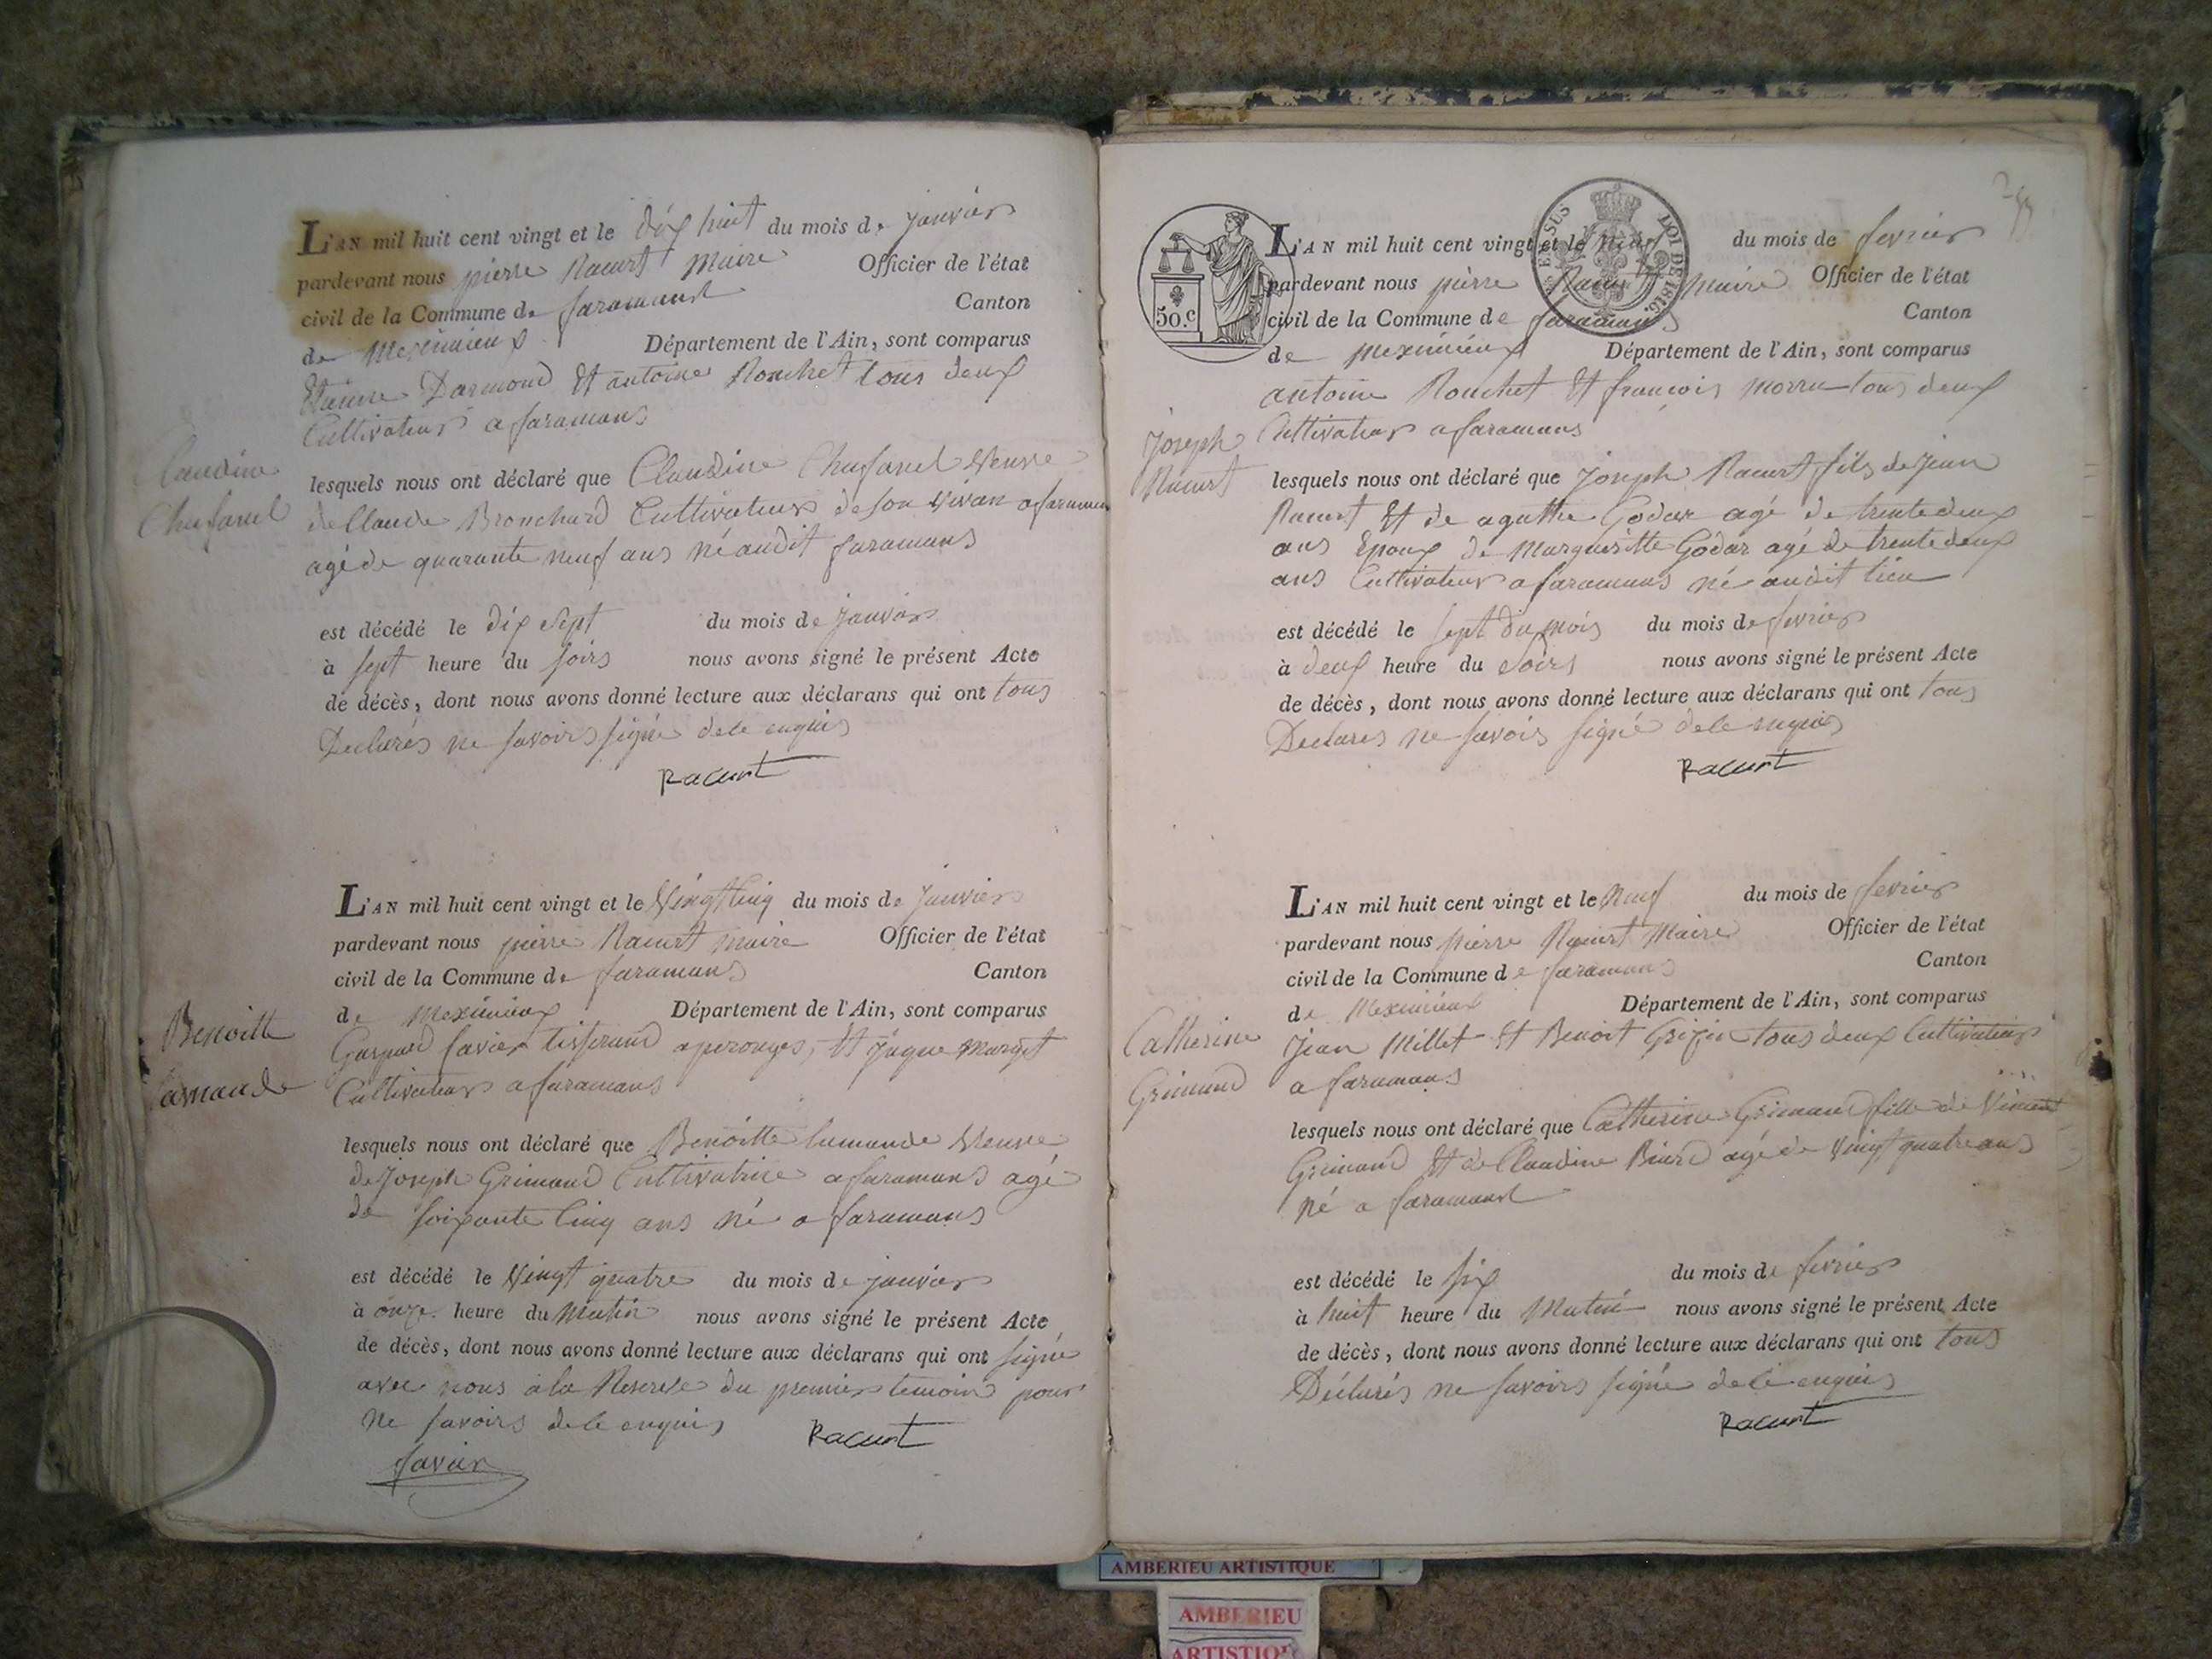 L'AN mil huit cent vingt et le dix huit du mois de janvier
pardevant nous pierre Racurt Maire Officier de l'état
civil de la Commune de faramans Canton
de Meximieux Département de l'Ain, sont comparus
Darmond Et antoine Rouchet tous deux
Cultivateurs a faramans
Claudine
lesquels nous ont déclaré que Claudine Chafanel Veuve
Chafanel
de Claude Bronchard Cultivateur de son Vivan a faramans
agé de quarante neuf ans né audit faramans
est décédé le dix Sept du mois de janvier
à sept heure du soirs nous avons signé le présent Acte
de décès, dont nous avons donné lecture aux déclarans qui ont tous
Declarés ne savoirs signé de le enquis
Racurt
L'AN mil huit cent vingt et le Vingt Cinq du mois de janvier
pardevant nous pierre Racurt maire Officier de l'état
civil de la Commune de faramans Canton
de Meximieux Département de l'Ain, sont comparus
Benoitte
Gaspard favier tisserand a perouges, Et Jaque
Lamande
Cultivateur a faramans
lesquels nous ont déclaré que Benoitte lamande Veuve
de Joseph Grimaud Cultivatrice a faramans agé
de soixante Cinq ans né a faramans
est décédé le Vingt quatre du mois de janvier
à onze heure du Matin nous avons signé le présent Acte
de décès, dont nous avons donné lecture aux déclarans qui ont signé
avec nous a la Reserve du premier temoin pour
ne savoirs de le enquis Racurt
favier
50.C
EN SUS LOI DE 1816.
L'AN mil huit cent vingt et le neuf du mois de fevrier
pardevant nous pierre Racurt Maire Officier de l'état
civil de la Commune de faramans Canton
de Meximieux Département de l'Ain, sont comparus
antoine Rouchet Et françois morru tous deux
Joseph
Cultivateur a faramans
Racurt
lesquels nous ont déclaré que Joseph Racurt fils de jean
Racurt Et de agathe Godar agé de trente deux
ans Epoux de Margueritte Godar agé de trente deux
ans Cultivateur a faramans né audit lieu
est décédé le sept du mois du mois de fevrier
à deux heure du Soirs nous avons signé le présent Acte
de décès, dont nous avons donné lecture aux déclarans qui ont tous
Declarés ne savoirs signé de le enquis
Racurt
L'AN mil huit cent vingt et le Neuf du mois de fevrier
pardevant nous pierre Racurt Maire Officier de l'état
civil de la Commune de faramans Canton
de Meximieux Département de l'Ain, sont comparus
Catherine
Jean Millet Et Benoit tous deux Cultivateurs
Grimaud
a faramans
lesquels nous ont déclaré que Catherine Grimaud fille de Vincent
Grimaud Et de Claudine Biard agé de Vingt quatre ans
né a faramans
est décédé le six du mois de fevrier
à huit heure du Matin nous avons signé le présent Acte
de décès, dont nous avons donné lecture aux déclarans qui ont tous
Déclarés ne savoirs signé de le enquis
Racurt
AMBERIEU ARTISTIQUE
AMBERIEU